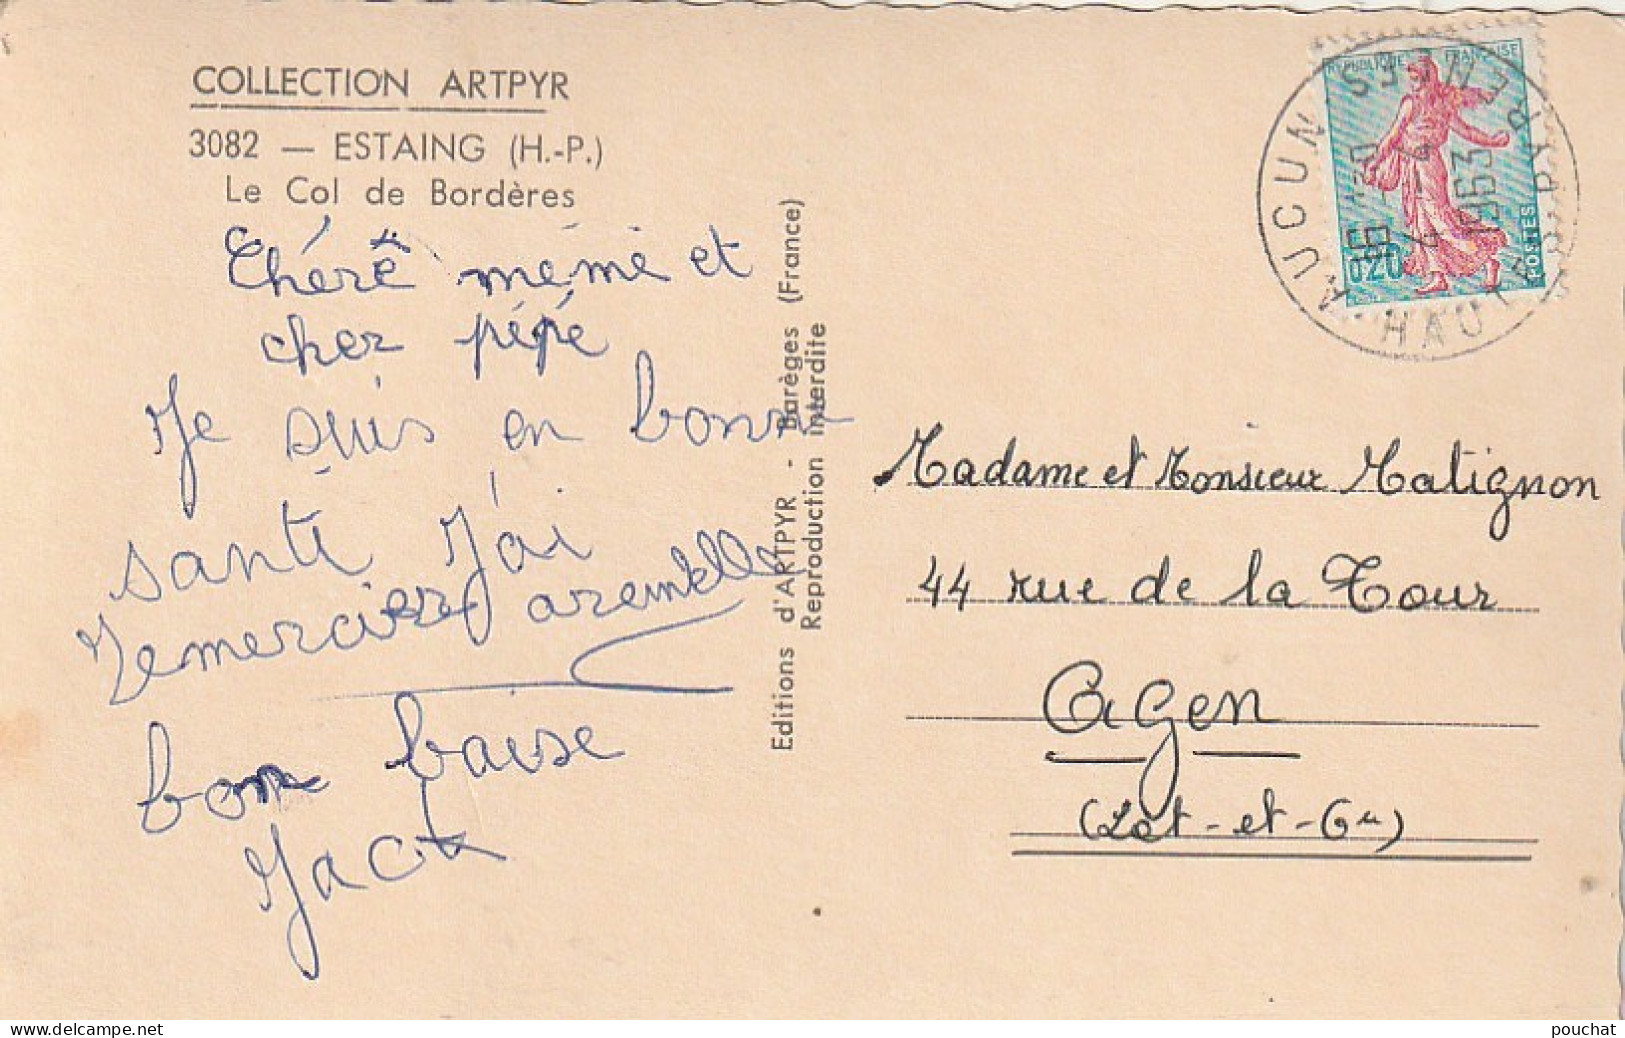 COLLECTION ARTPYR
3082 — ESTAING (H.-P.)
Le Col de Bordères
Chérē mémé et
cher pépé
Je suis en bonne
santé J'ai
bon baise
Jack
Editions d'ARTPYR - Barèges (France)
Reproduction interdite
REPUBLIQUE FRANÇAISE
0,20
POSTES
AUCUN
HAUTES PYRENEES
4 - 4
1963
Madame et Monsieur Matignon
44 rue de la Tour
Agen
(Lot-et-Gne)
delcampe.net
pouchat